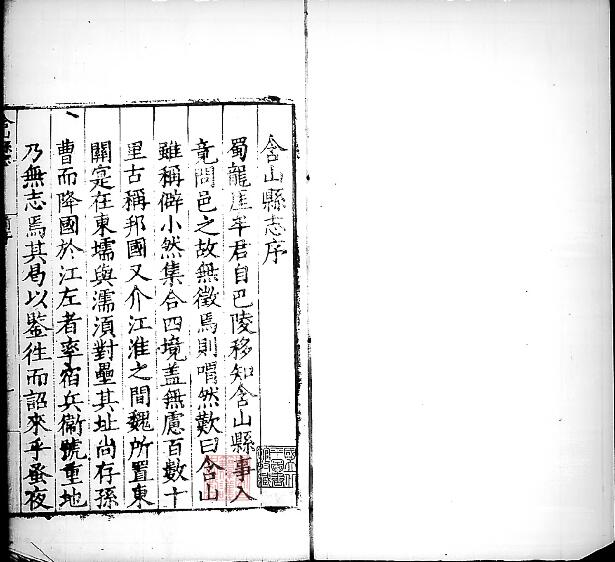 含山縣志序
蜀龍崖牟君自巴陵移知含山縣事入
竟問邑之故無徵焉則喟然歎曰含山
雖稱僻小然集合四境盖無慮百數十
里古稱邦國又介江淮之間魏所置東
關寔在東壖與濡須對壘其址尚存孫
曹而降國於江左者率宿兵衞號重地
乃無志焉其曷以鑒徃而詔來乎蚤夜